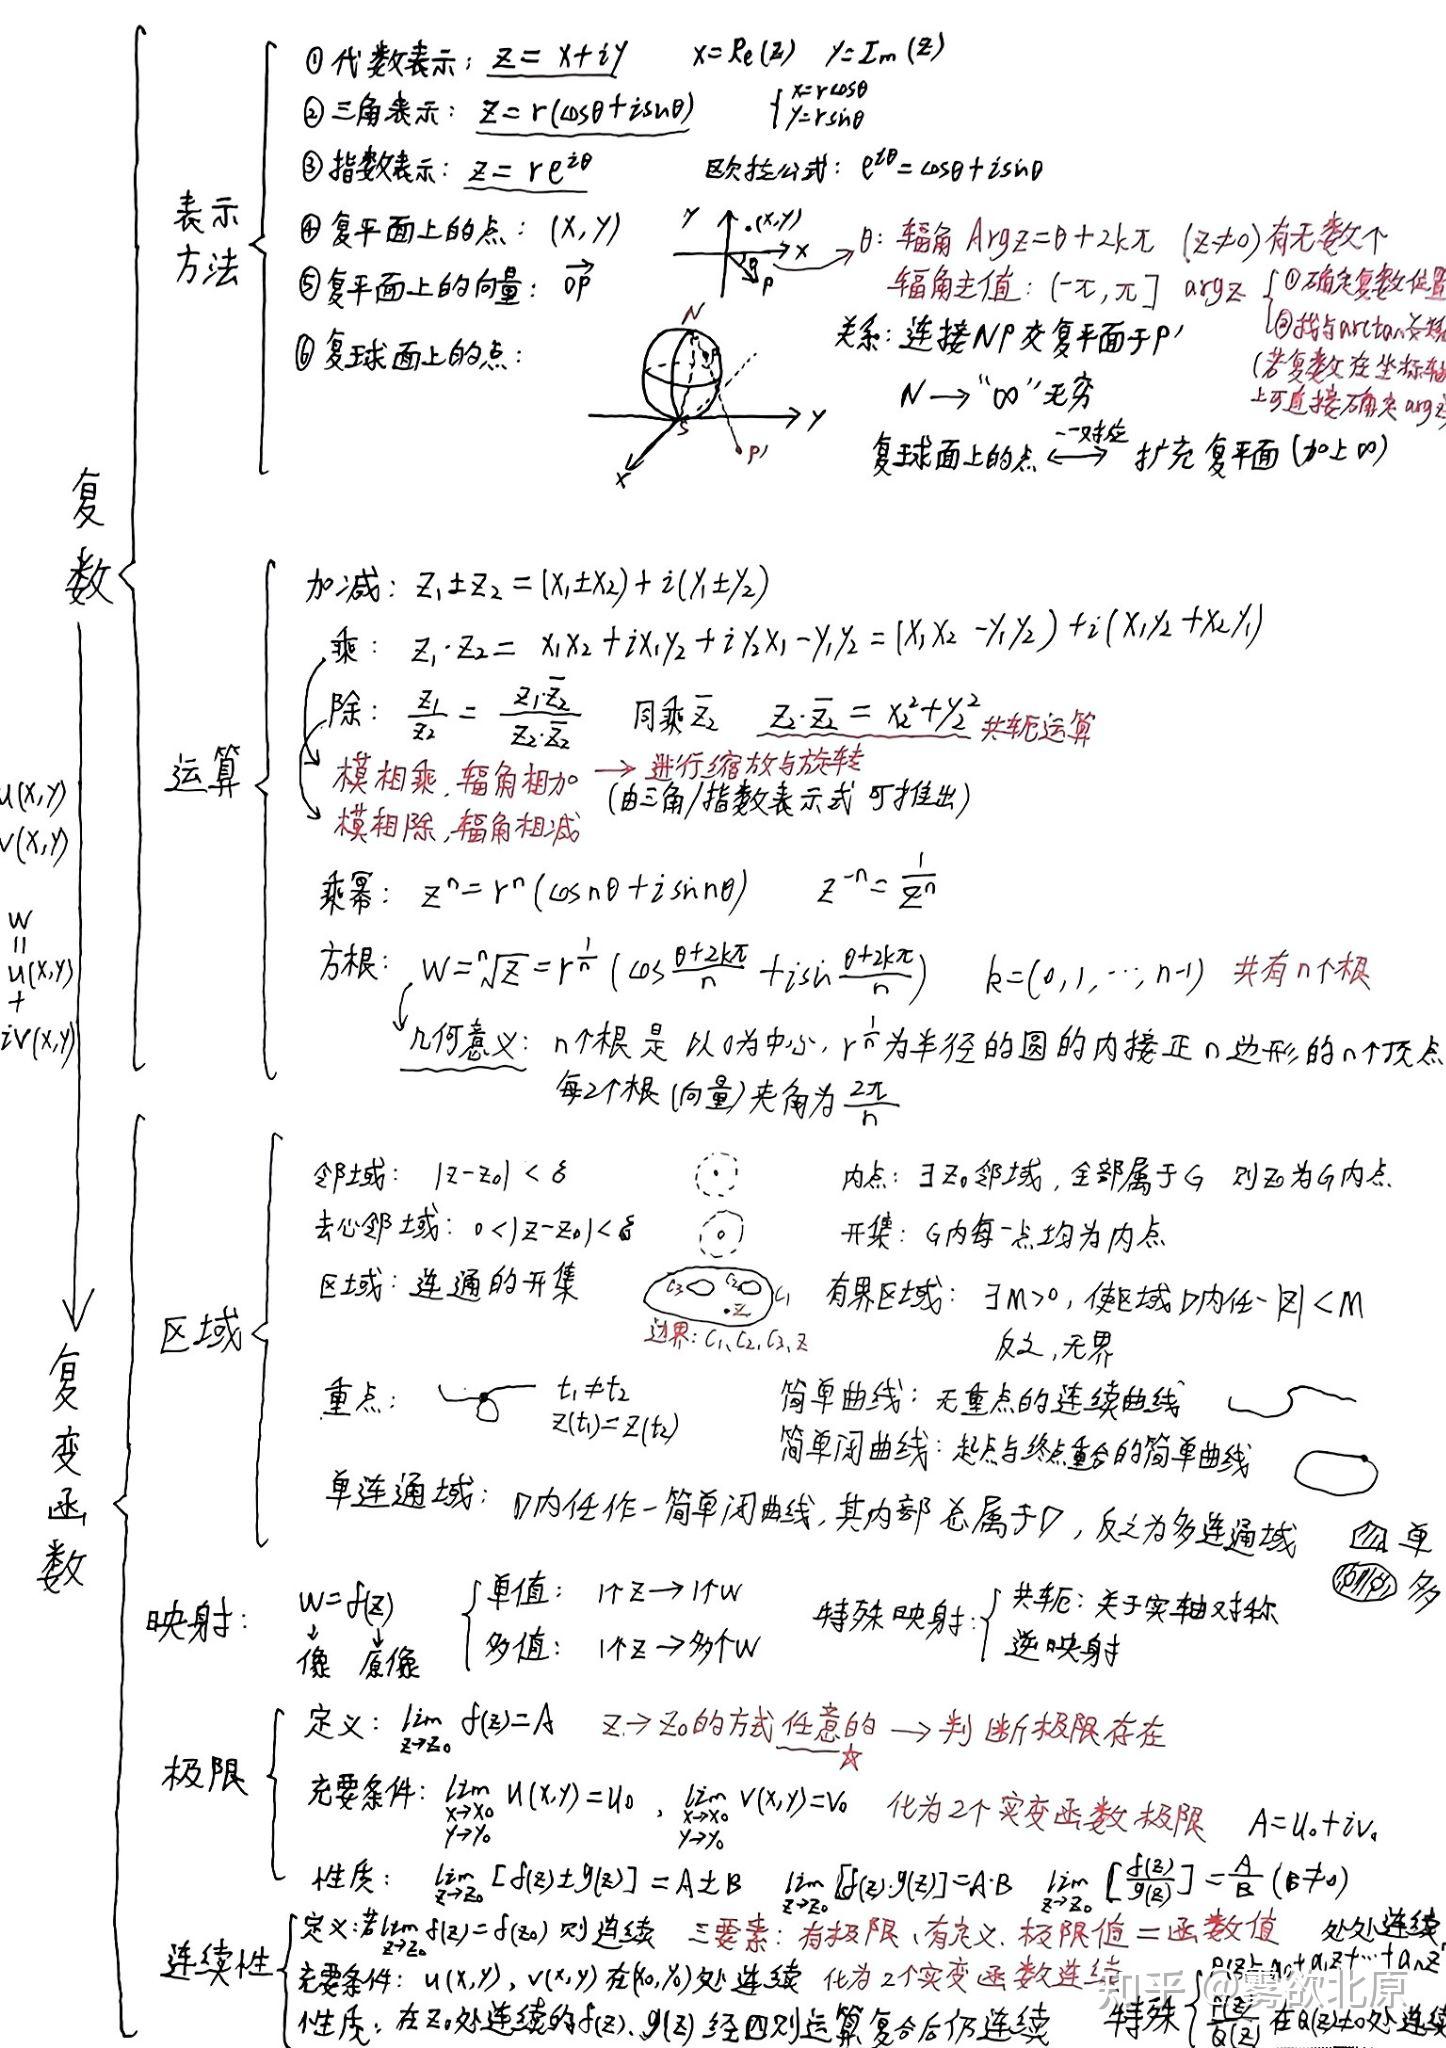 ① 代数表示: z = x+iy x=Re(z) y=Im(z)
② 三角表示: z=r(cosθ+isinθ) { x=rcosθ
y=rsinθ
③ 指数表示: z=re^{iθ} 欧拉公式: e^{iθ}=cosθ+isinθ
表示方法
④ 复平面上的点: (x,y) y .(x,y) x θ P
θ: 辐角 Argz=θ+2kπ (z≠0) 有无数个
⑤ 复平面上的向量: \overrightarrow{OP} 辐角主值: (-π,π] argz { ①确定复数位置
②找与arctan
⑥ 复球面上的点: N P S P' x y 关系: 连接NP交复平面于P'
(若复数在坐标轴
上可直接确定arg
N→“∞”无穷
复球面上的点 ⟷ 一一对应 扩充复平面(加上∞)
复数
运算
加减: z₁±z₂=(x₁±x₂)+i(y₁±y₂)
乘: z₁·z₂= x₁x₂+ix₁y₂+iy₂x₁-y₁y₂=(x₁x₂-y₁y₂)+i(x₁y₂+x₂y₁)
除: z₁/z₂ = z₁·z̄₂/z₂·z̄₂ 同乘z̄₂ z₂·z̄₂=x₂²+y₂² 共轭运算
模相乘,辐角相加 → 进行缩放与旋转
(由三角/指数表示式可推出)
模相除,辐角相减
乘幂: zⁿ=rⁿ(cosnθ+isinnθ) z⁻ⁿ=1/zⁿ
方根: w=ⁿ√z=r^{1/n}(cos (θ+2kπ)/n +isin (θ+2kπ)/n) k=(0,1,…,n-1) 共有n个根
几何意义: n个根是以0为中心,r^{1/n}为半径的圆的内接正n边形的n个顶点
每2个根(向量)夹角为2π/n
u(x,y)
v(x,y)
w
=
u(x,y)
+
iv(x,y)
复变函数
区域
邻域: |z-z₀|<δ 内点: ∃z₀邻域,全部属于G 则z₀为G内点
去心邻域: 0<|z-z₀|<δ 开集: G内每一点均为内点
区域: 连通的开集 C₃ C₂ C₁ z 有界区域: ∃M>0,使区域D内任一|z|<M
边界: C₁、C₂、C₃、z 反之,无界
重点: t₁≠t₂ 简单曲线: 无重点的连续曲线
z(t₁)=z(t₂) 简单闭曲线: 起点与终点重合的简单曲线
单连通域: D内任作一简单闭曲线,其内部总属于D,反之为多连通域 单
多
映射: w=f(z) { 单值: 1个z→1个w 特殊映射: { 共轭: 关于实轴对称
像 原像 多值: 1个z→多个w 逆映射
极限
定义: lim_{z→z₀} f(z)=A z→z₀的方式任意的☆ → 判断极限存在
充要条件: lim_{x→x₀ y→y₀} u(x,y)=u₀ , lim_{x→x₀ y→y₀} v(x,y)=v₀ 化为2个实变函数极限 A=u₀+iv₀
性质: lim_{z→z₀}[f(z)±g(z)]=A±B lim_{z→z₀}[f(z)·g(z)]=A·B lim_{z→z₀}[f(z)/g(z)]=A/B (B≠0)
连续性
定义:若lim_{z→z₀} f(z)=f(z₀) 则连续 三要素: 有极限、有定义、极限值=函数值 处处连续
充要条件: u(x,y), v(x,y)在(x₀,y₀)处连续 化为2个实变函数连续
性质: 在z₀处连续的f(z)、g(z)经四则运算复合后仍连续
特殊 { P(z)=a₀+a₁z+…+aₙz
P(z)/Q(z) 在Q(z)≠0处连续
知乎 @雾欲北原